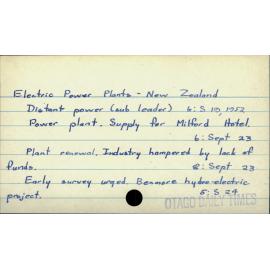 Electric Power Plants - New Zealand
Distant power (sub leader) 6: S 10, 1952
Power plant. Supply for Milford Hotel.
6: Sept 23
Plant renewal. Industry hampered by lack of
funds. 8: Sept 23
Early survey urged. Benmore hydro-electric
project. 5: S 24
OTAGO DAILY TIMES